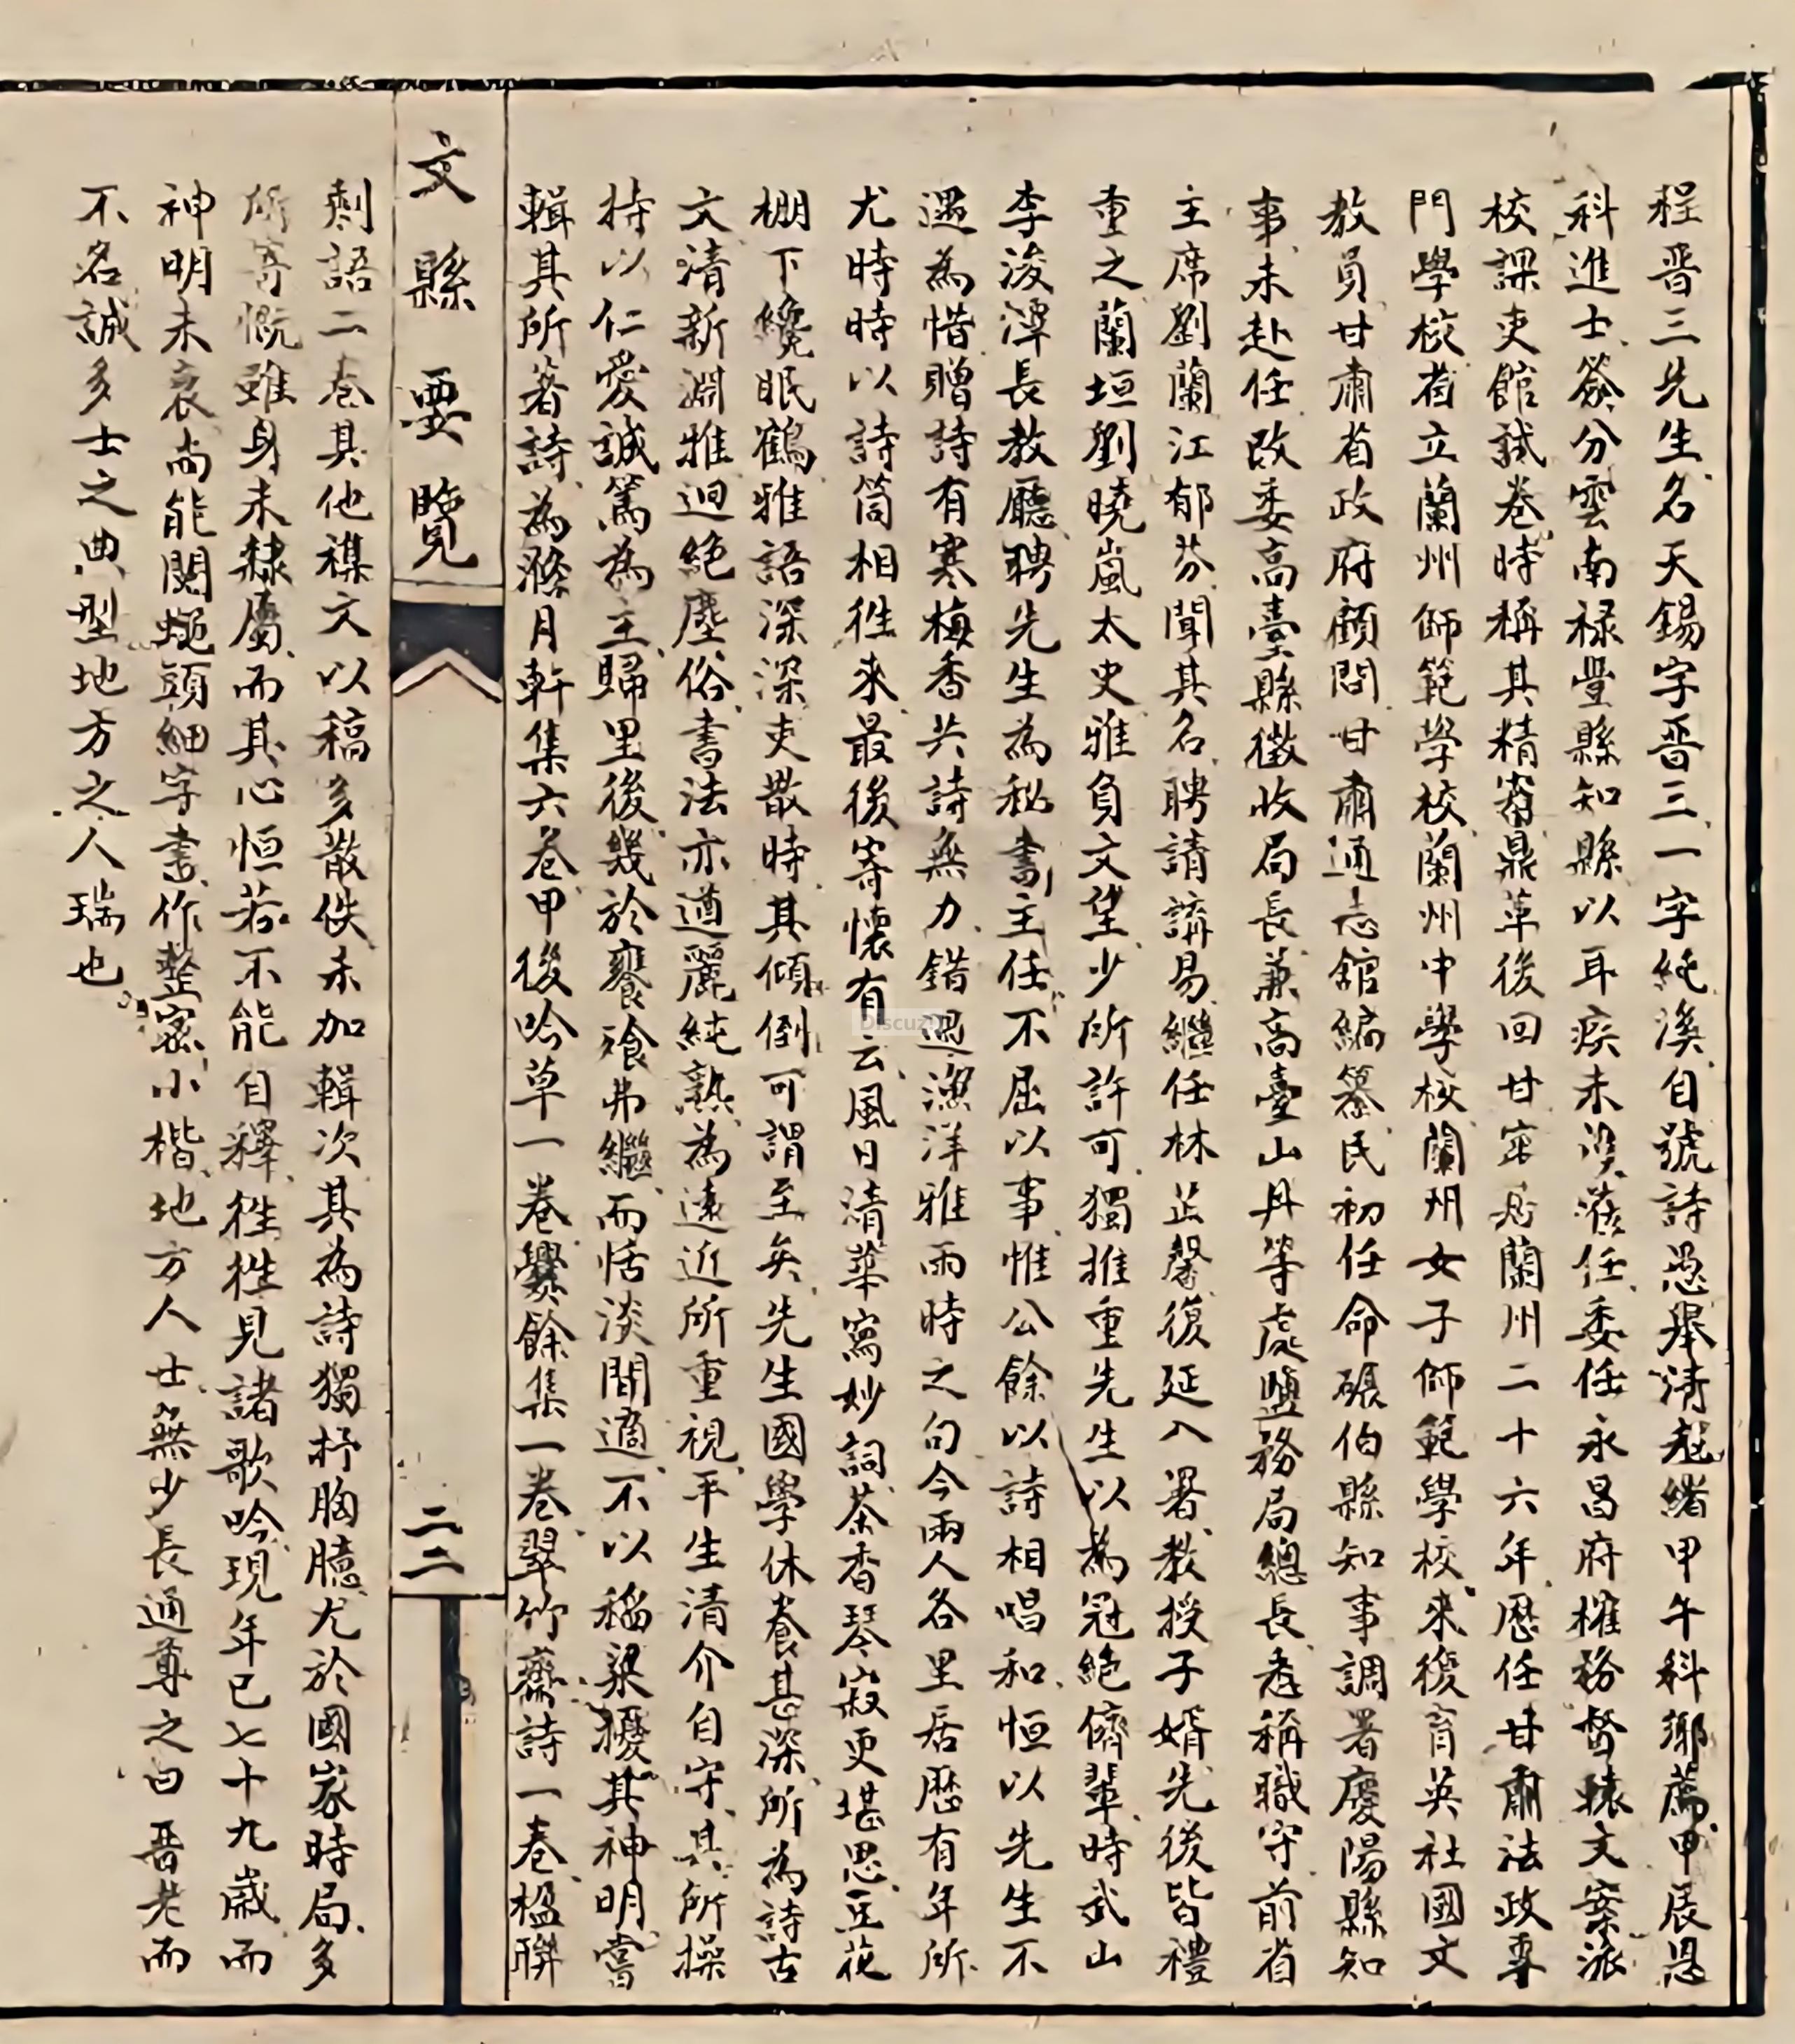 程晋三先生名天錫字晋三一字純溪自號詩愚舉清光緒甲午科鄉薦甲辰恩
科進士簽分雲南祿豐縣知縣以耳疾未獲蒞任委任永昌府榷務督轅文案派
校課吏館試卷時稱其精審鼎革後回甘寓居蘭州二十六年歷任甘肅法政專
門學校省立蘭州師範學校蘭州中學校蘭州女子師範學校來復育英社國文
教員甘肅省政府顧問甘肅通志舘編纂民初任命碾伯縣知事調署慶陽縣知
事未赴任改委高臺縣徵收局長兼高臺山丹等處鹽務局總長悉稱職守前省
主席劉蘭江郁芬聞其名聘請講易繼任林芷馨復延入署教授子婿先後皆禮
重之蘭垣劉曉嵐太史雅負文望少所許可獨推重先生以為冠絕儕輩時武山
李浚潭長教廳聘先生為秘書主任不屈以事惟公餘以詩相唱和恒以先生不
遇為惜贈詩有寒梅香共詩無力錯過瀛洋雅雨時之句今兩人各里居歷有年所
尤時時以詩筒相徃來最後寄懷有云風日清華寫妙詞茶香琴寂更堪思豆花
棚下纔眠鶴雅語深深吏散時其傾倒可謂至矣先生國學休養甚深所為詩古
文清新淵雅迥絕塵俗書法亦遒麗純熟為遠近所重視平生清介自守其所操
持以仁愛誠篤為主歸里後幾於饔飧弗繼而恬淡閒適不以稻粱擾其神明嘗
輯其所著詩為滌月軒集六卷甲後吟草一卷爨餘集一卷翠竹齋詩一卷楹聯
文縣要覽
二二
剩語二卷其他襍文以稿多散佚未加輯次其為詩獨抒胸臆尤於國家時局多
所寄慨雖身未隸屬而其心恒若不能自釋徃徃見諸歌吟現年已七十九歲而
神明未衰尚能閱蠅頭細字書作整密小楷地方人士無少長通尊之曰晋老而
不名誠多士之典型地方之人瑞也
Discuz!